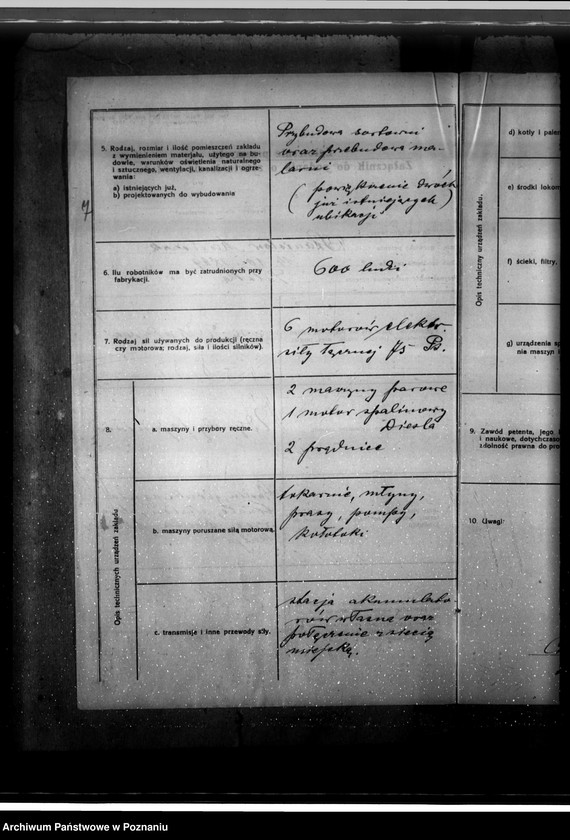 7
5. Rodzaj, rozmiar i ilość pomieszczeń zakładu
z wymienieniem materjału, użytego na bu-
dowie, warunków oświetlenia naturalnego
i sztucznego, wentylacji, kanalizacji i ogrze-
wania:
a) istniejących już,
b) projektowanych do wybudowania
Przybudowa sortowni
oraz przebudowa ma-
larni
(powiększenie dwóch
już istniejących)
ubikacji
6. Ilu robotników ma być zatrudnionych przy
fabrykacji.
600 ludzi
7. Rodzaj sił używanych do produkcji (ręczna
czy motorowa; rodzaj, siła i ilości silników).
6 motorów elektr.
siły łącznej 75 Ps.
8.
Opis technicznych urządzeń zakładu
a. maszyny i przybory ręczne.
2 maszyny parowe
1 motor spalinowy
Diesla
2 prądnice
b. maszyny poruszane siłą motorową.
tokarnie, młyny,
prasy, pompy,
c. transmisje i inne przewody siły.
stacja akumulato-
rów własna oraz
połączenie z siecią
miejską.
Opis techniczny urządzeń zakładu.
d) kotły i
e) środki
f) ścieki, filtry,
g) urządzenia
nia maszyn
9. Zawód petenta, jego
i naukowe, dotychczaso
zdolność prawna do
10. Uwagi:
Archiwum Państwowe w Poznaniu